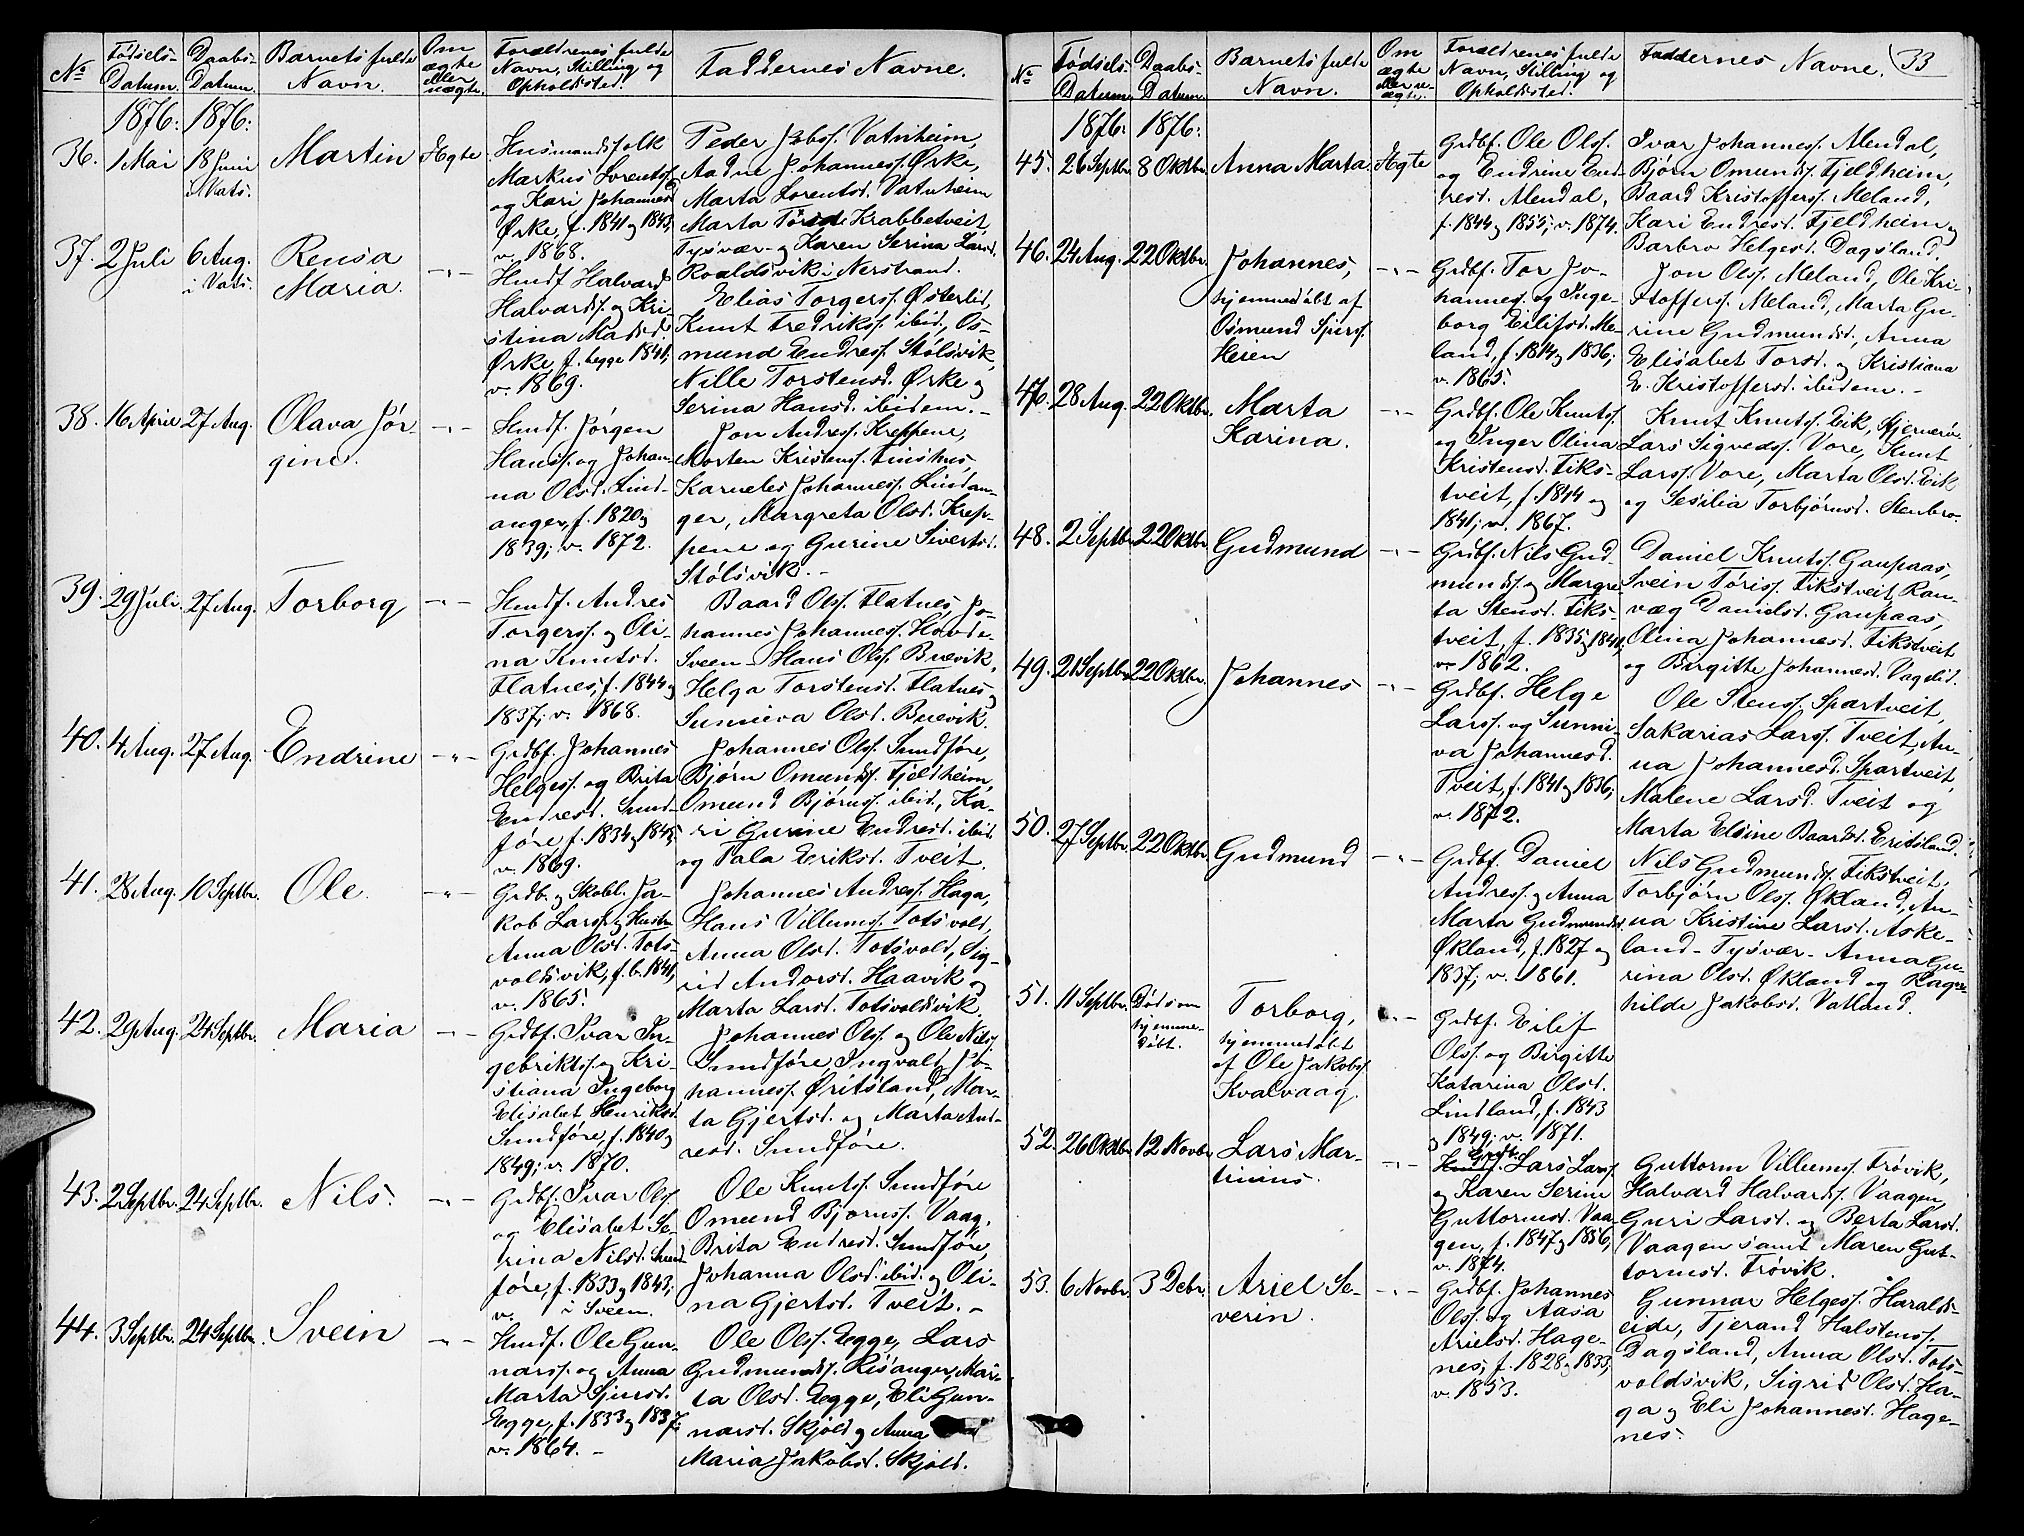 33
No
Fødsels-
Datum.
Daabs-
Datum.
Barnets fulde
Navn.
Om
ægte
eller
uægte.
Forældrenes fulde
Navn, Stilling og
Opholdssted.
Faddernes Navne.
1876: 1876:
36. 1 Mai 18 Juni
i Vats.
Martin
Ægte
Husmandsfolk
Markus Lorentss.
og Kari Johannesd.
Ørke, f. 1841 og 1843,
v. 1868.
Peder Jobss. Vatnheim,
Aadne Johanness. Ørke,
Marta Lorentsd. Vatnheim
Marta Torsd. Krabbetveit,
Tysvær - og Karen Serina Larsd.
Roaldsvik i Nerstrand.
37. 2 Juli 6 Aug.
i Vats.
Rensa
Maria.
-"-
Hmdf. Halvard
Halvardss. og Kri-
stina Madsd.
Ørke, f. begge 1841,
v. 1869.
Elias Torgerss. Østerlid,
Knut Fredrikss. ibid., Os-
mund Endress. Stølsvik,
Nille Torstensd. Ørke og
Serina Hansd. ibidem. -
38. 16 April 27 Aug.
Olava Jør-
gine.
-"-
Hmdf. Jørgen
Hanss. og Johan-
na Olsd. Lind-
anger, f. 1820 og
1839; v. 1872.
Jon Andress. Kreppene,
Morten Kristenss.
Karneles Johanness. Lindan-
ger, Margreta Olsd. Krep-
pene og Gurine Sivertsd.
Stølsvik. -
39. 29 Juli 27 Aug.
Torborg
-"-
Hmdf. Andres
Torgerss. og Oli-
na Knutsd.
Flatnes, f. 1844 og
1837; v. 1868.
Baard Olss. Flatnes, Jo-
hannes Johanness. Hovde-
Sveen - Hans Olss. Buevik,
Helga Torstensd. Flatnes og
Sunniva Olsd. Buevik.
40. 4 Aug. 27 Aug.
Endrine
-"-
Grdbf. Johannes
Helgess. og Brita
Endresd. Sund-
føre, f. 1834 og 1845,
v. 1869.
Johannes Olss. Sundføre,
Bjørn Omundss. Fjeldheim,
Omund Bjørnss. ibid., Ka-
ri Gurine Endresd. ibid.
og Tala Eriksd. Tveit.
41. 28 Aug. 10 Septbr.
Ole.
-"-
Grdb. og Skobl. Ja-
kob Larss. og Hustr.
Anna Olsd. Tots-
voldsvik, f. b. 1841,
v. 1865.
Johannes Andress. Haga,
Hans Villumss. Totsvold,
Anna Olsd. Totsvold, Sig-
rid Andorsd. Haavik og
Marta Larsd. Totsvoldsvik.
42. 29 Aug. 24 Septbr.
Maria
-"-
Grdbf. Ivar In-
gebriktss. og Kri-
stiana Ingeborg
Elisabet Henriksd.
Sundføre, f. 1840 og
1849; v. 1870.
Johannes Olss. og Ole Nilss.
Sundføre, Ingvald Jo-
hanness. Øritsland, Mar-
ta Gjertsd. og Marta And-
resd. Sundføre.
43. 2 Septbr. 24 Septbr.
Nils.
-"-
Grdbf. Ivar Olss.
og Elisabet Se-
rina Nilsd. Sund-
føre, f. 1833 og 1843,
v. i Sveen.
Ole Knutss. Sundføre
Omund Bjørnss. Vaag,
Brita Endresd. Sundføre,
Johanna Olsd. ibid. og Oli-
na Gjertsd. Tveit. -
44. 3 Septbr. 24 Septbr.
Svein
-"-
Hmdf. Ole Gun-
narss. og Anna
Marta Sjursd.
Egge, f. 1833 og 1837;
v. 1864. -
Ole Olss. Egge, Lars
Gudmundss. Risanger, Mar-
ta Olsd. Egge, Eli Gun-
narsd. Skjold og Anna
Maria Jakobsd. Skjold.
No
Fødsels-
Datum.
Daabs-
Datum.
Barnets fulde
Navn.
Om
ægte
eller u-
ægte.
Forældrenes fulde
Navn, Stilling og
Opholdssted.
Faddernes Navne.
1876: 1876:
45. 26 Septbr. 8 Oktbr.
Anna Marta.
Ægte
Grdbf. Ole Olss.
og Endrine End-
resd. Alendal,
f. 1844 og 1855; v. 1874.
Ivar Johanness. Alendal,
Bjørn Omundss. Fjeldheim,
Baard Kristofferss. Meland,
Kari Endresd. Fjeldheim og
Barbro Helgesd. Dagsland.
46. 24 Aug. 22 Oktbr.
Johannes,
hjemmedøbt af
Osmund Sjurss.
Heien
-"-
Grdbf. Tor Jo-
hanness. og Inge-
borg Eilifsd. Me-
land, f. 1814 og 1836;
v. 1865.
Jon Olss. Meland, Ole Kri-
stofferss. Meland, Marta Gu-
rine Gudmundsd., Anna
Elisabet Torsd. og Kristiana
E. Kristoffersd. ibidem. -
47. 28 Aug. 22 Oktbr.
Marta
Karina.
-"-
Grdbf. Ole Knutss.
og Inger Olina
Kristensd. Fiks-
tveit, f. 1844 og
1841; v. 1867.
Knut Knutss. Eik,
Lars Sigvedss. Vore, Knut
Larss. Vore, Marta Olsd. Eik
og Sesilia Torbjørnsd. Stenbro.
48. 2 Septbr. 22 Oktbr.
Gudmund
-"-
Grdbf. Nils Gud-
mundss. og Margre-
ta Stensd. Fiks-
tveit, f. 1835 og 1841,
v. 1862.
Daniel Knutss. Gaupaas,
Svein Toriss. Fikstveit, Ran-
væg Danielsd. Gaupaas,
Olina Johannesd. Fikstveit
og Birgitte Johannesd. Vaglid.
49. 21 Septbr. 22 Oktbr.
Johannes
-"-
Grdbf. Helge
Larss. og Sunni-
va Johannesd.
Tveit, f. 1841 og 1836;
v. 1872.
Ole Stenss. Spartveit,
Sakarias Larss. Tveit, An-
na Johannesd. Spartveit,
Malene Larsd. Tveit og
Marta Elsine Baardsd. Eritsland.
50. 27 Septbr. 22 Oktbr.
Gudmund
-"-
Grdbf. Daniel
Andress. og Anna
Marta Gudmundsd.
Økland, f. 1827 og
1837; v. 1861.
Nils Gudmundss. Fikstveit,
Torbjørn Olss. Økland, An-
na Kristine Larsd. Aske-
land - Tysvær - Anna Gu-
rina Olsd. Økland og Ragn-
hilde Jakobsd. Vatland.
51. 11 Septbr. Død som
hjemme-
døbt.
Torborg,
hjemmedøbt
af Ole Jakobss.
Kvalvaag.
-"-
Grdbf. Eilif
Olss. og Birgitte
Katarina Olsd.
Lindland, f. 1843
og 1849; v. 1871.
52. 26 Oktbr. 12 Novbr.
Lars Mar-
tinius.
-"-
Grdbf. Lars Larss.
og Karen Serine
Guttormsd. Vaa-
gen, f. 1847 og 1856,
v. 1874.
Guttorm Villumss. Frøvik,
Halvard Halvardss. Vaagen,
Guri Larsd. og Berta Larsd.
Vaagen samt Maren Gut-
tormsd. Frøvik.
53. 6 Novbr. 3 Debr.
Ariel Se-
verin.
-"-
Grdbf. Johannes
Olss. og Aasa
Arielsd. Hage-
nes, f. 1828 og 1833,
v. 1853.
Gunnar Helgess. Haralds-
eide, Tjerand Halstenss.
Dagsland, Anna Olsd. Tots-
voldsvik, Sigrid Olsd. Ha-
ga og Eli Johannesd. Hage-
nes.